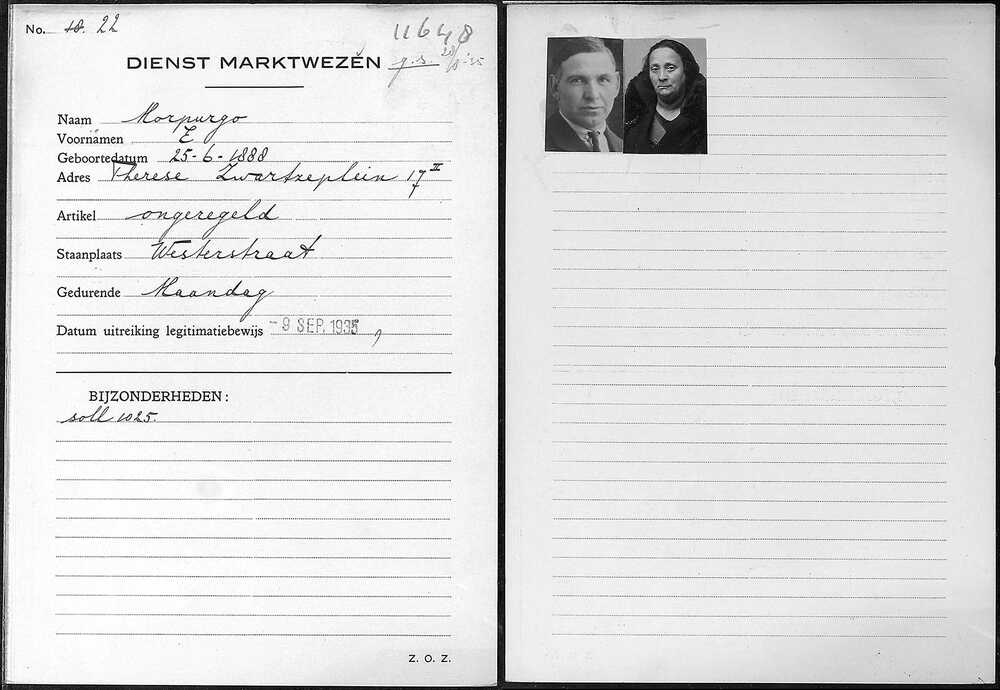 No. 18. 22
11648
DIENST MARKTWEZEN
Naam Morpurgo
Voornamen E
Geboortedatum 25-6-1888
Adres Therese Zwartzeplein 17 II
Artikel ongeregeld
Staanplaats Westerstraat
Gedurende Maandag
Datum uitreiking legitimatiebewijs - 9 SEP. 1935
BIJZONDERHEDEN:
soll 1025.
Z. O. Z.